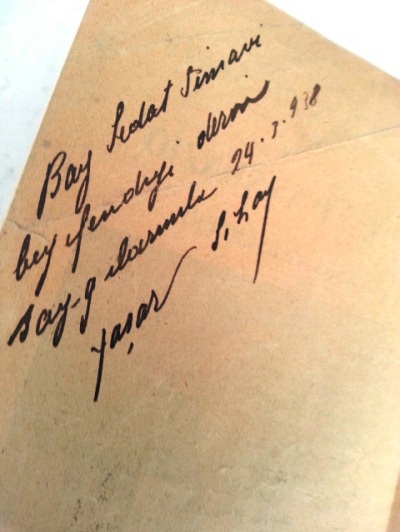 Bay Sedat Simavi
bey efendiye derin
say-gılarımla
Yaşar